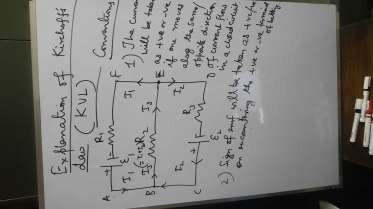 Explanation of Kirchoff's
law (KVL)
Conventions
1) The current
will be taken
as +ve or -ve
if one moves
along the same/
opposite direction
of current flow
in a closed circuit
2) Sign of emf will be taken as +ve/-ve
on encountering the +ve or -ve terminal
of battery
A
ε1
R1
F
I1
I1
B
R2
E
I3
I3
I2
I2
C
ε2
R3
D